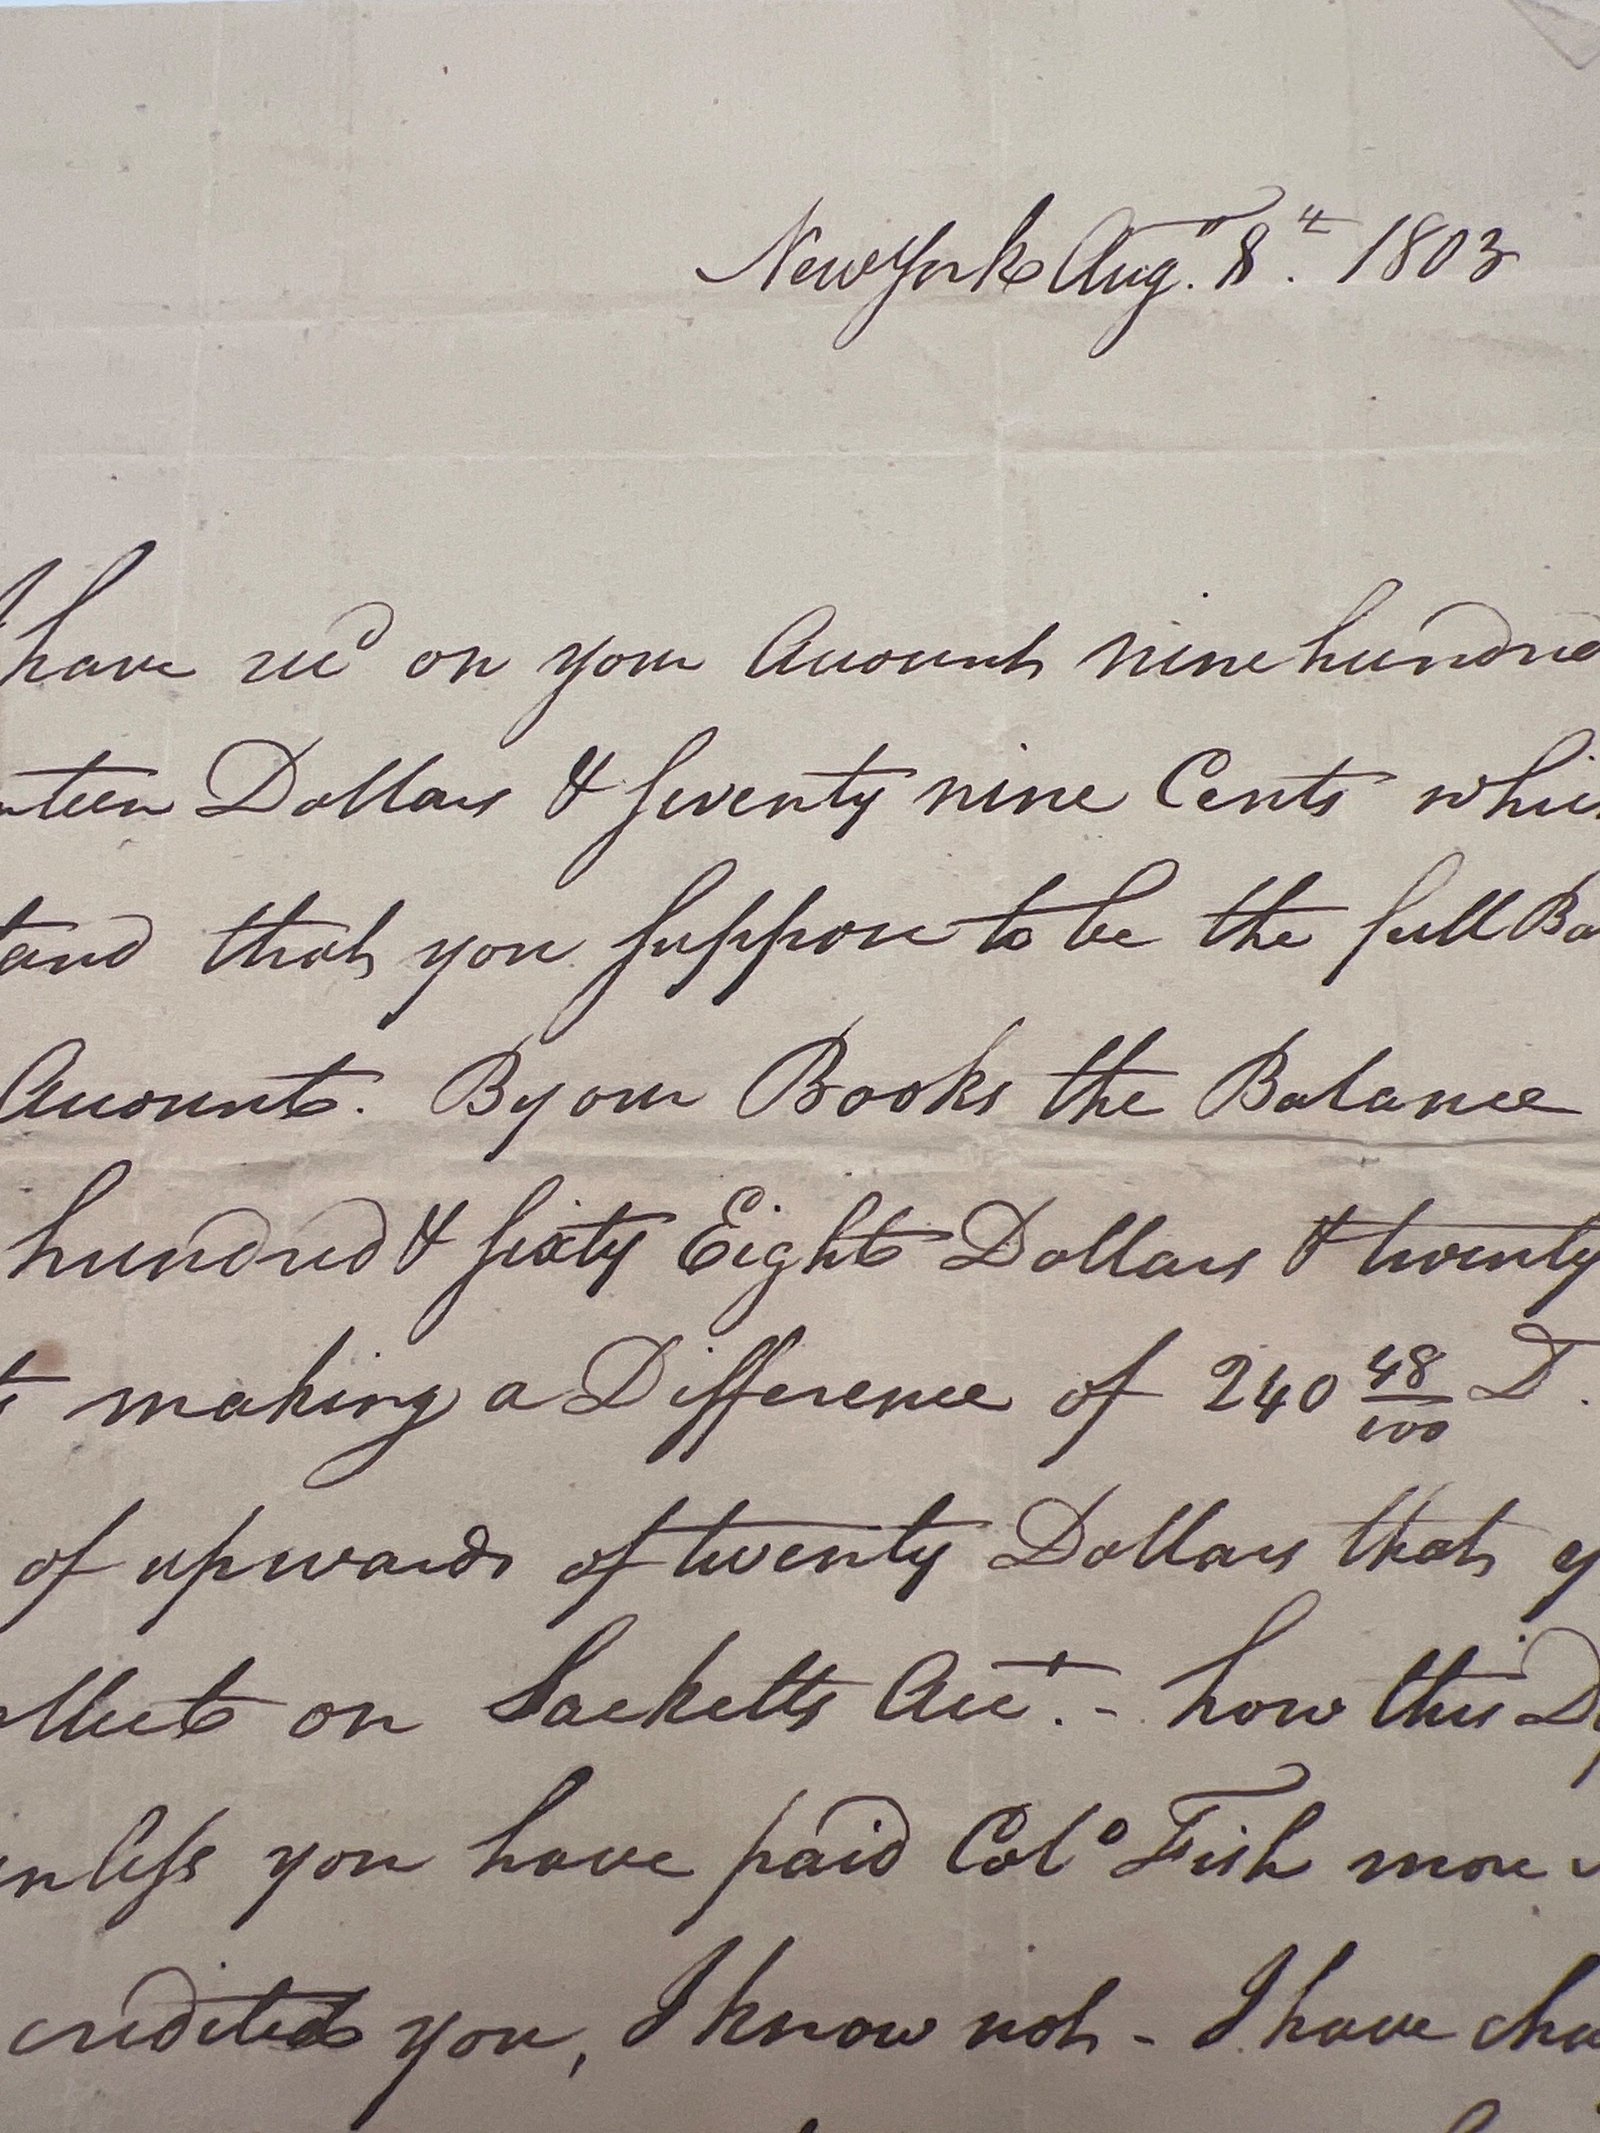 New York Aug.t 8.th 1803
I have rec.d on your Account nine hundred
nteen Dollars & seventy nine Cents whic
tand that you suppose to be the full Ba
Account. By our Books the Balance
hundred & sixty Eight Dollars & twenty
ts making a Difference of 240 48/100 D.
of upwards of twenty Dollars that y
llect on Sacketts Acc.t - how this D
unless you have paid Col.o Fish more
credited you, I know not - I have cha